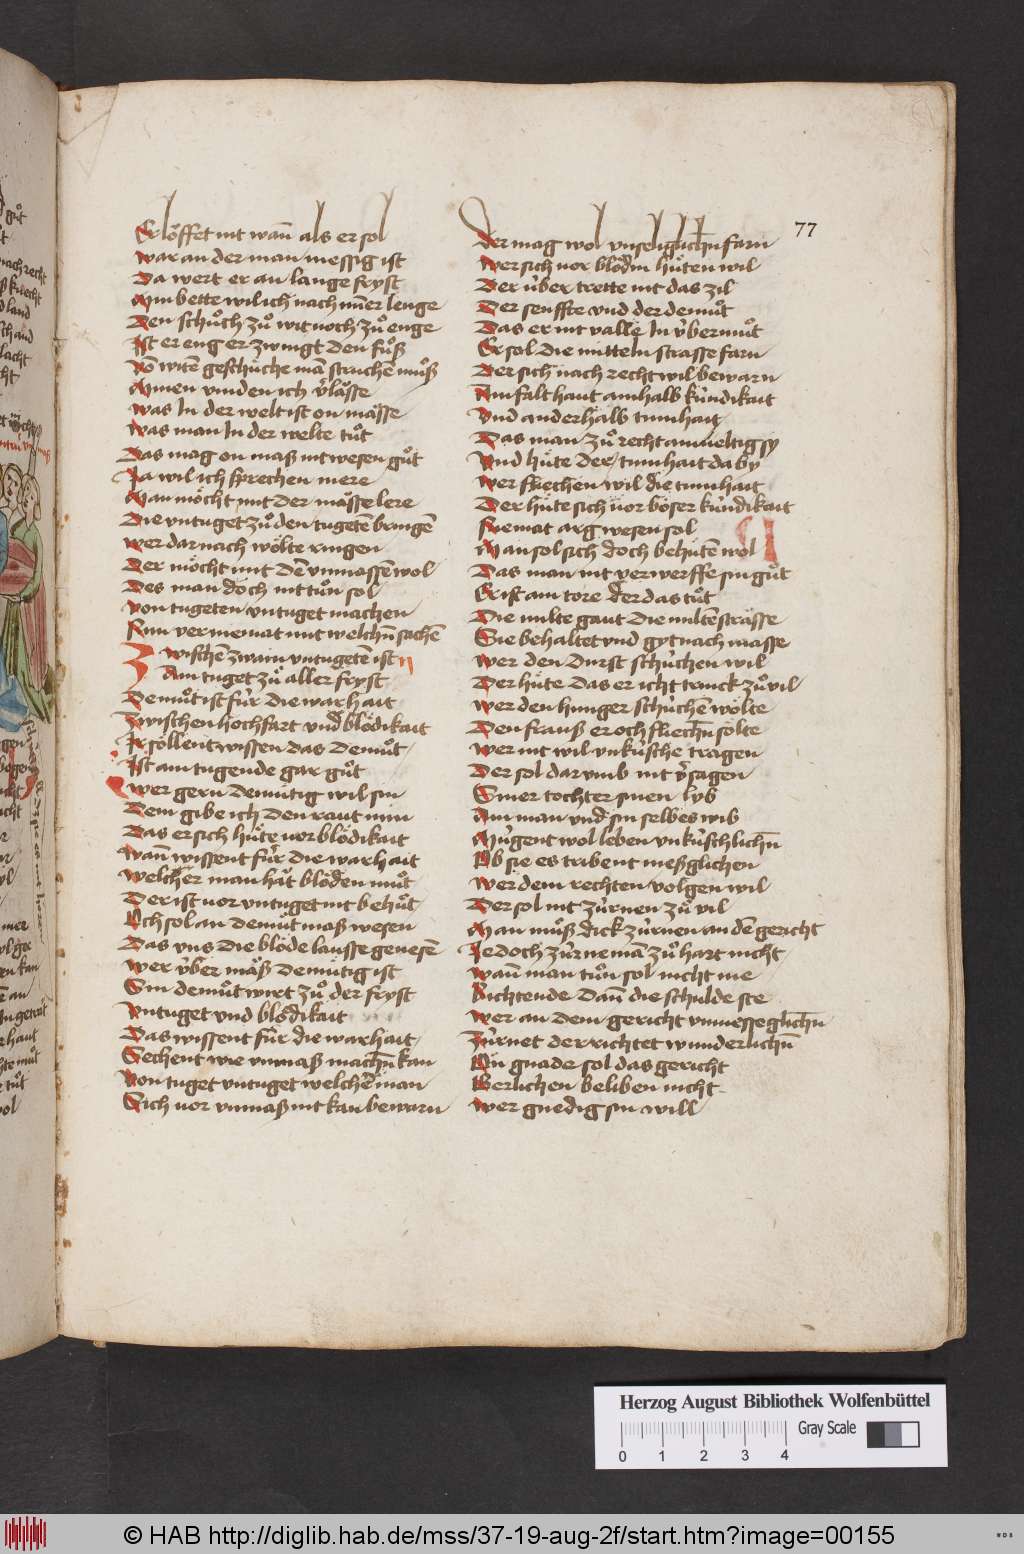 77
Er löffet nit wañ als er sol
war an der man messig ist
Da wert er an lange fryst
Ain bette wil ich nach min̄er lenge
Den schůch zů wit noch zů enge
Ist er eng er zwingt den fůß
Von witē geschüche mā struchē můß
Aynen vinden ich v̄lässe
was In der welt ist on mässe
was man In der welte tůt
Das mag on maß nit wesen gůt
Ja wil ich sprechen mere
Man möcht mit der mässe lere
Die vntuget zů den tugetē bringē
wer dar nach wölte ringen
Der möcht mit dē vnmassē wol
Des man doch nit tůn sol
von tugeten vntuget machen
Nun vernemat mit welchn̄ sachē
Zwischē zwain vntugetē ist
Ain tuget zů aller fryst
Demůt ist für die warhait
Zwischen hochfart vnd blödikait
Ir söllent wissen das demůt
Ist ain tugende gar gůt
wer gern demütig wil sin
Dem gibe ich den raut min
Das er sich hüte vor blödikait
wañ wissent für die warhait
welcher man hät blöden můt
Der ist vor vntuget nit behůt
Och sol an demůt maß wesen
Das vns die blöde lausse genesē
wer über mäß demütig ist
Sin demůt wirt zů der fryst
vntuget vnd blödikait
Das wissent für die warhait
Sechent wie vnmaß machn̄ kan
von tuget vntuget welcher man
Sich vor vnmaß nit kan bewarn
der mag wol vnseliglichn̄ farn
wer sich vor blödin hüten wil
Der über trette nit das zil
Der senffte vnd der demůt
Das er nit valle In v̄bermůt
Er sol die mitteln strasse farn
Der sich nach recht wil bewarn
Ainfalt haut ainhalb kündikait
vnd anderhalb tumhait
Das man zů recht ainueltig sy
vnd hüte der tumhait da by
wer fliechen wil die tumhait
Der hüte sich vor böser kündikait
Niemat arg wesen sol
Man sol sich doch behütē wol
Das man nit verwerffe sin gůt
Er ist ain tore der das tůt
Die milte gaut die miltē strässe
Sie behaltet vnd gyt nach masse
wer den durst schüchen wil
Der hüte das er icht trinck zů vil
wer den hunger schüchē wölte
Den frauß er och fliechn̄ sölte
wer nit wil vnküsche tragen
Der sol dar vmb nit v̄sagen
Siner tochter sinen lyb
Ain man vnd sin selbes wib
Mügent wol leben vnküschlichn̄
Ob sie es tribent meßglichen
wer dem rechten volgen wil
Der sol nit zürnen zů vil
Man můß dick zürnen an dē gericht
Jedoch zürne mā zů hart nicht
wañ man tůn sol nicht me
Richtende dañ die schulde ste
wer an dem gericht vnmesseglichn̄
Zürnet der richtet wunderlichn̄
On gnade sol das gericht
Werlichen beliben nicht
wer gnedig sin will
Herzog August Bibliothek Wolfenbüttel
0 1 2 3 4
Gray Scale
© HAB http://diglib.hab.de/mss/37-19-aug-2f/start.htm?image=00155